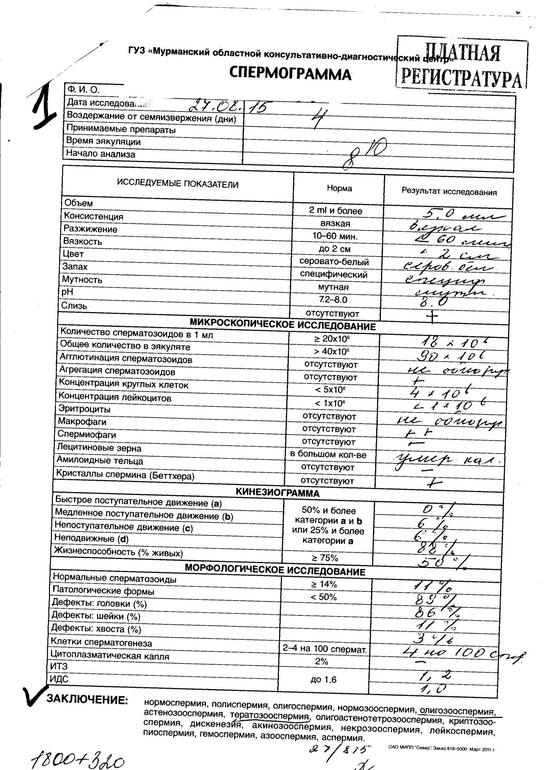 ГУЗ «Мурманский областной консультативно-диагностический центр»
ПЛАТНАЯ
РЕГИСТРАТУРА
СПЕРМОГРАММА
1
Ф. И. О.
Дата исследован. 27.02.15
Воздержание от семяизвержения (дни) 4
Принимаемые препараты
Время эякуляции
Начало анализа 8 10
ИССЛЕДУЕМЫЕ ПОКАЗАТЕЛИ Норма Результат исследования
Объем 2 ml и более 5.0 мл
Консистенция вязкая вязкая
Разжижение 10–60 мин. < 60 мин
Вязкость до 2 см < 2 см
Цвет серовато-белый серов. бел
Запах специфический специф
Мутность мутная мутн.
pH 7.2–8.0 8.0
Слизь отсутствуют +
МИКРОСКОПИЧЕСКОЕ ИССЛЕДОВАНИЕ
Количество сперматозоидов в 1 мл ≥ 20x10⁶ 18 x 10⁶
Общее количество в эякуляте > 40x10⁶ 90 x 10⁶
Агглютинация сперматозоидов отсутствуют не обнаруж
Агрегация сперматозоидов отсутствуют +
Концентрация круглых клеток < 5x10⁶ 4 x 10⁶
Концентрация лейкоцитов < 1x10⁶ < 1 x 10⁶
Эритроциты отсутствуют не обнаруж
Макрофаги отсутствуют ++
Спермиофаги отсутствуют –
Лецитиновые зерна в большом кол-ве умер кол.
Амилоидные тельца отсутствуют –
Кристаллы спермина (Беттхера) отсутствуют +
КИНЕЗИОГРАММА
Быстрое поступательное движение (a) 50% и более 0 %
Медленное поступательное движение (b) категории a и b 6 %
Непоступательное движение (c) или 25% и более 6 %
Неподвижные (d) категории a 88 %
Жизнеспособность (% живых) ≥ 75% 50 %
МОРФОЛОГИЧЕСКОЕ ИССЛЕДОВАНИЕ
Нормальные сперматозоиды ≥ 14% 11 %
Патологические формы < 50% 89 %
Дефекты: головки (%) 86 %
Дефекты: шейки (%) 11 %
Дефекты: хвоста (%) 3 %
Клетки сперматогенеза 2–4 на 100 спермат. 4 на 100 спер
Цитоплазматическая капля 2% –
ИТЗ 1,2
ИДС до 1,6 1,0
ЗАКЛЮЧЕНИЕ: нормоспермия, полиспермия, олигоспермия, нормозооспермия, олигозооспермия,
астенозооспермия, тератозооспермия, олигоастенотетрозооспермия, криптозоо-
спермия, дискенезйя, акинозооспермия, некрозооспермия, лейкоспермия,
пиоспермия, гемоспермия, азооспермия, аспермия.
ОАО МИПП "Север". Заказ 818-5000. Март 2011 г.
1800+320